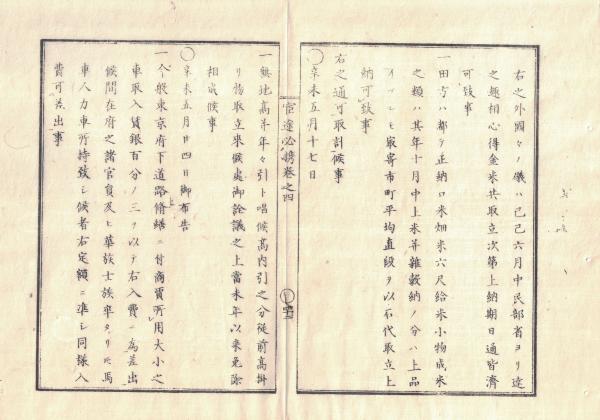 右之外國々ノ儀ハ己巳六月中民部省ヨリ達
之趣相心得金米共取立次第上納期日通皆濟
可致事
一田方ハ都テ正納口米畑米六尺給米小物成米
之類ハ其年十月中上米并雜穀納ノ分ハ上品
イヅレモ最寄市町平均直段ヲ以石代取立上
納可致事
右之通可取計候事
○辛未五月十七日
官途必携卷之四
一無地高并年々引ト唱候高内引之分從前高掛
リ物取立来候處御詮議之上當未年以来免除
相成候事
○辛未五月廿四日御布告
一今般東京府下道路脩繕ニ付商賈所用大小之
車取入賃銀百分ノ三ヲ以テ右入費ニ為差出
候間在府之諸官員及ヒ華族士族卒タリ圧馬
車人力車所持致シ候者右定額ニ準シ同様入
費可差出事